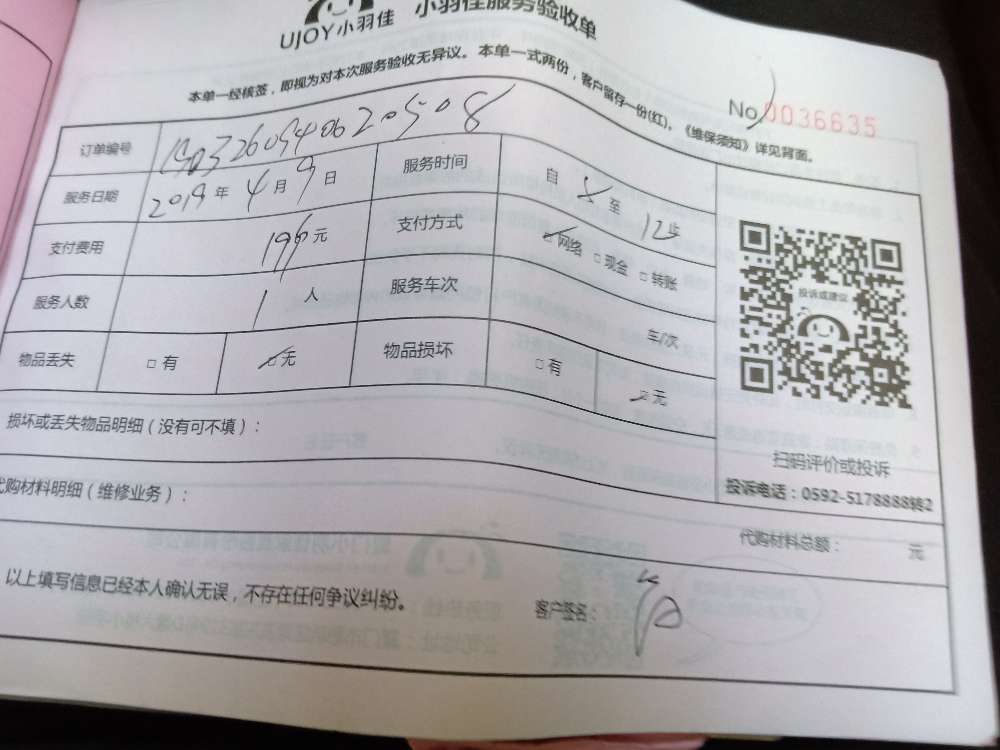 UJOY小羽佳 小羽佳服务验收单
本单一经核签，即视为对本次服务验收无异议。本单一式两份，客户留存一份(红)，《维保须知》详见背面。
No 0036635
订单编号
服务日期 2019 年 4 月 9 日 服务时间 自 8 至 12 止
支付费用 元 支付方式 ☑网络 □现金 □转账
服务人数 1 人 服务车次 车/次
物品丢失 □有 ☑无 物品损坏 □有 ☑无
投诉或建议
扫码评价或投诉
投诉电话：0592-5178888转2
损坏或丢失物品明细（没有可不填）：
代购材料明细（维修业务）：
代购材料总额： 元
以上填写信息已经本人确认无误，不存在任何争议纠纷。 客户签名：